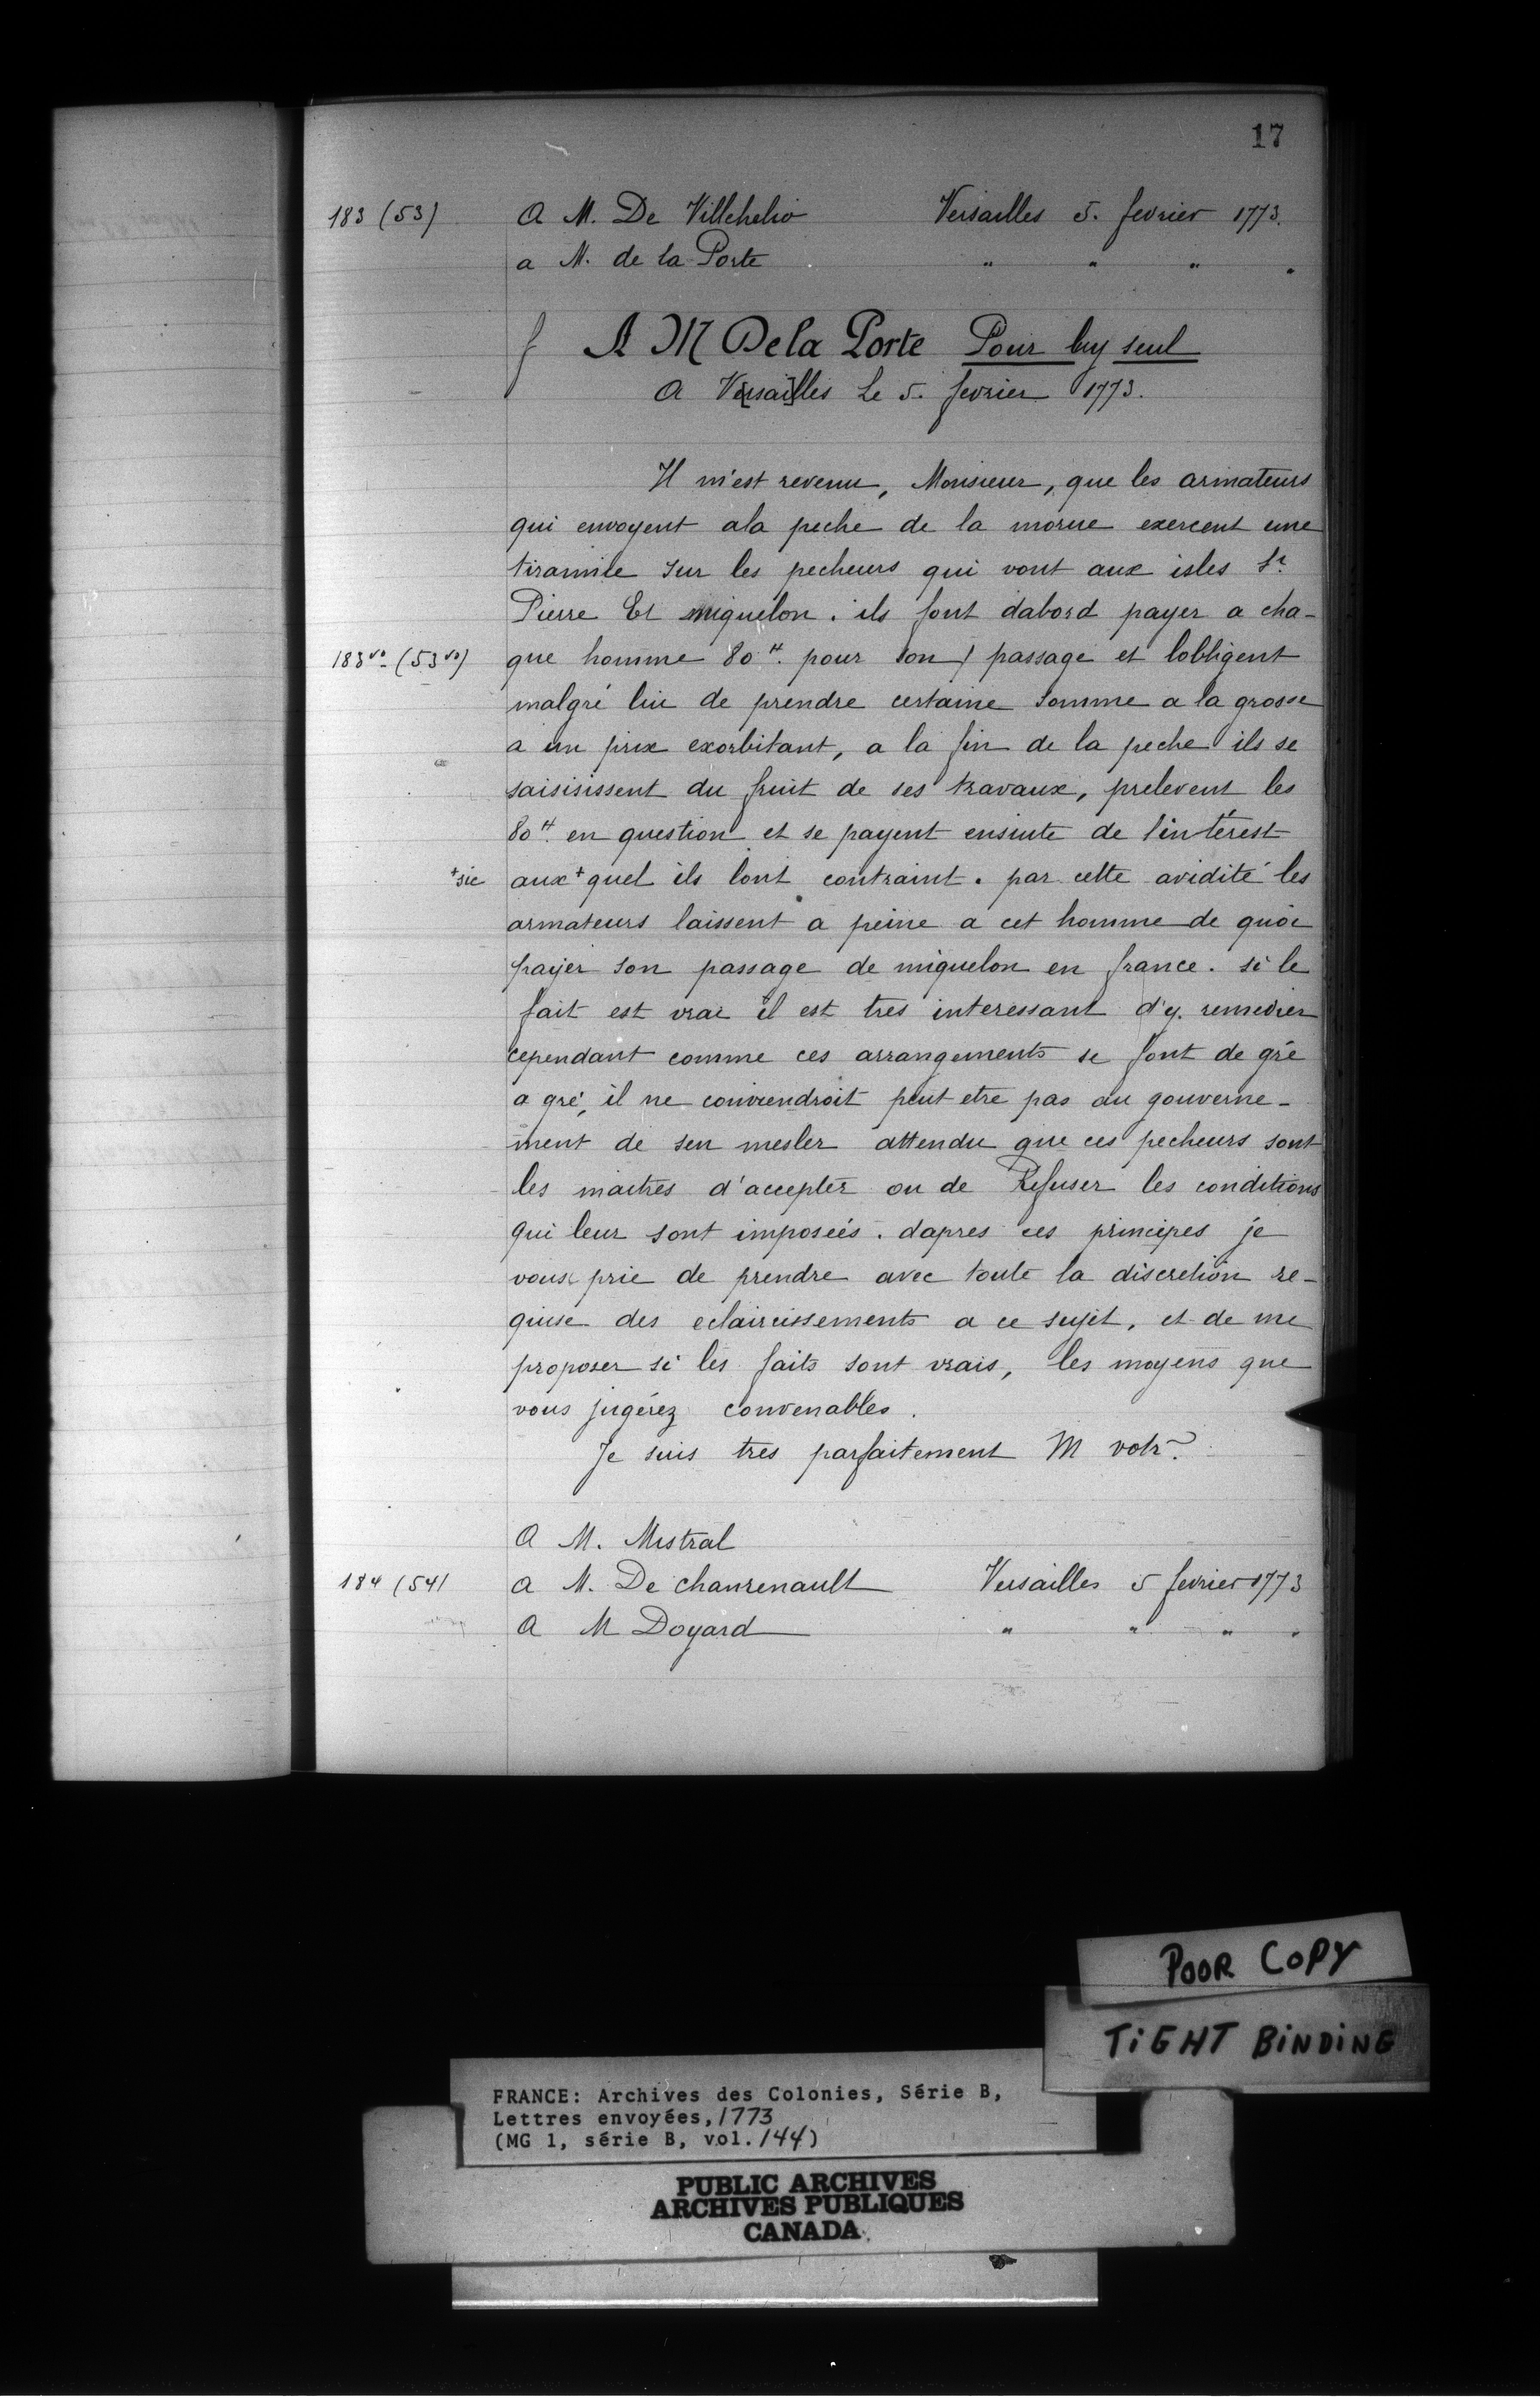 17
183 (53) A M. De Villehelio Versailles 5. fevrier 1773.
a M. de la Porte " " " "
f A M De la Porte Pour luy seul
A Ve[rsai]lles Le 5. fevrier 1773.
Il m'est revenu, Monsieur, que les armateurs
qui envoyent ala peche de la morue exercent une
tirannie sur les pecheurs qui vont aux isles St.
Pierre Et miquelon. ils font dabord payer a cha-
183vo (53vo) que homme 80 ₶. pour son / passage et lobligent
malgré lui de prendre certaine somme a la grosse
a un prix exorbitant, a la fin de la peche ils se
saisisissent du fruit de ses travaux, prelevent les
80 ₶. en question et se payent ensuite de l'interest
+sic aux+ quel ils lont contraint. par cette avidité les
armateurs laissent a peine a cet homme de quoi
payer son passage de miquelon en france. si le
fait est vrai il est tres interessant d'y. remedier
cependant comme ces arrangements se font de gré
a gré, il ne conviendroit peut etre pas au gouverne-
ment de sen mesler attendu que ces pecheurs sont
les maitres d'accepter ou de Refuser les conditions
qui leur sont imposeés. dapres ces principes je
vous prie de prendre avec toute la discretion re-
quise des eclaircissements a ce sujet, et de me
proposer si les faits sont vrais, les moyens que
vous jugérez convenables.
Je suis tres parfaitement M votr.
A M. Mistral
184 (54) a M. De chanrenault Versailles 5 fevrier 1773
A M Doyard " " " "
POOR COPY
TIGHT BINDING
FRANCE: Archives des Colonies, Série B,
Lettres envoyées, 1773
(MG 1, série B, vol. 144)
PUBLIC ARCHIVES
ARCHIVES PUBLIQUES
CANADA